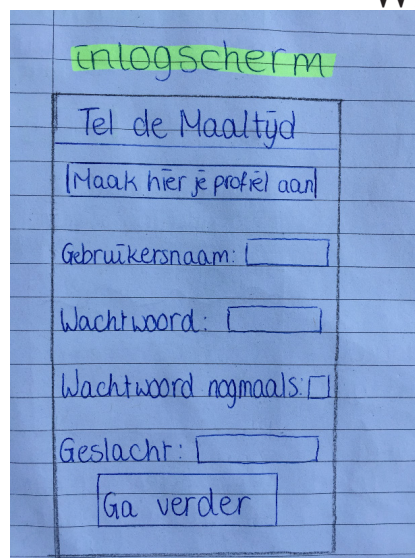 inlogscherm
Tel de Maaltijd
Maak hier je profiel aan
Gebruikersnaam:
Wachtwoord:
Wachtwoord nogmaals:
Geslacht:
Ga verder